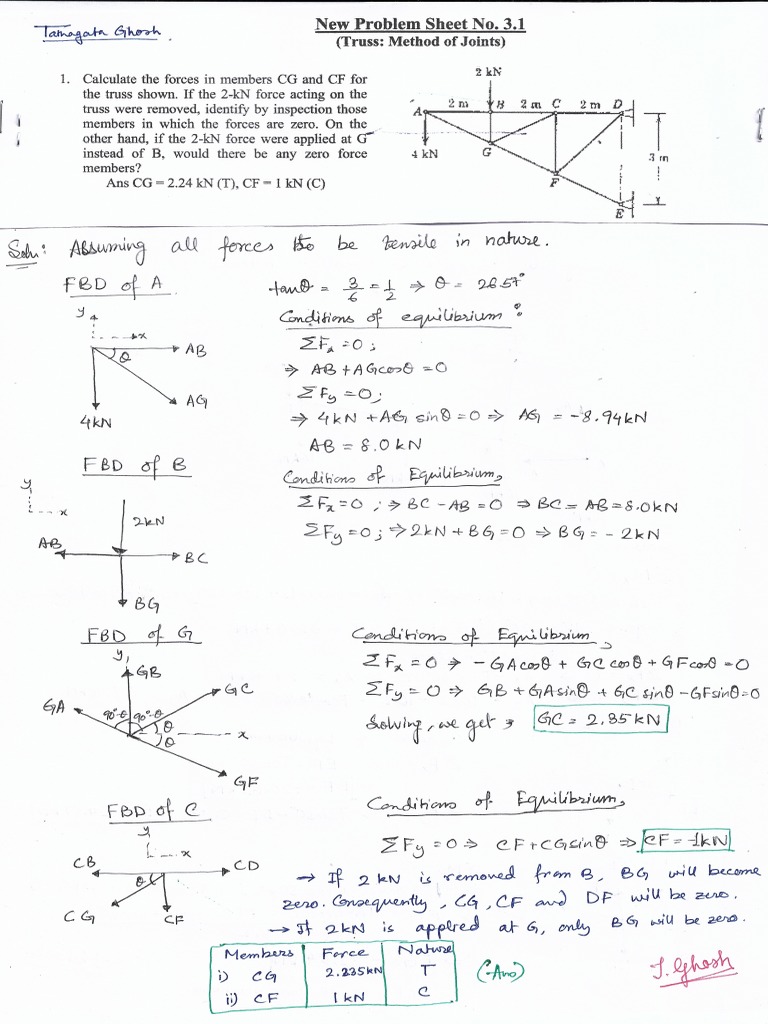 Tamagata Ghosh
New Problem Sheet No. 3.1
(Truss: Method of Joints)
1. Calculate the forces in members CG and CF for
the truss shown. If the 2-kN force acting on the
truss were removed, identify by inspection those
members in which the forces are zero. On the
other hand, if the 2-kN force were applied at G
instead of B, would there be any zero force
members?
Ans CG = 2.24 kN (T), CF = 1 kN (C)
2 kN
A 2 m B 2 m C 2 m D
4 kN G 3 m
F
E
Soln: Assuming all forces to be tensile in nature.
FBD of A
tanθ = 3/6 = 1/2 ⇒ θ = 26.57°
Conditions of equilibrium:
y x
θ AB
AG
4kN
ΣFx = 0;
⇒ AB + AGcosθ = 0
ΣFy = 0;
⇒ 4kN + AG sinθ = 0 ⇒ AG = -8.94kN
AB = 8.0 kN
FBD of B
Conditions of Equilibrium,
y x
2kN
AB BC
BG
ΣFx = 0; ⇒ BC - AB = 0 ⇒ BC = AB = 8.0kN
ΣFy = 0; ⇒ 2kN + BG = 0 ⇒ BG = - 2kN
FBD of G
Conditions of Equilibrium,
y GB
GA GC
90°-θ 90°-θ θ x
θ
GF
ΣFx = 0 ⇒ - GAcosθ + GC cosθ + GFcosθ = 0
ΣFy = 0 ⇒ GB + GAsinθ + GC sinθ - GFsinθ = 0
Solving, we get, GC = 2.235kN
FBD of C
Conditions of Equilibrium,
y x
CB CD
θ
CG CF
ΣFy = 0 ⇒ CF + CGsinθ ⇒ CF = -1kN
→ If 2 kN is removed from B, BG will become
zero. Consequently, CG, CF and DF will be zero.
→ If 2kN is applied at G, only BG will be zero.
Members Force Nature
i) CG 2.235kN T
ii) CF 1kN C
(Ans)
T. Ghosh